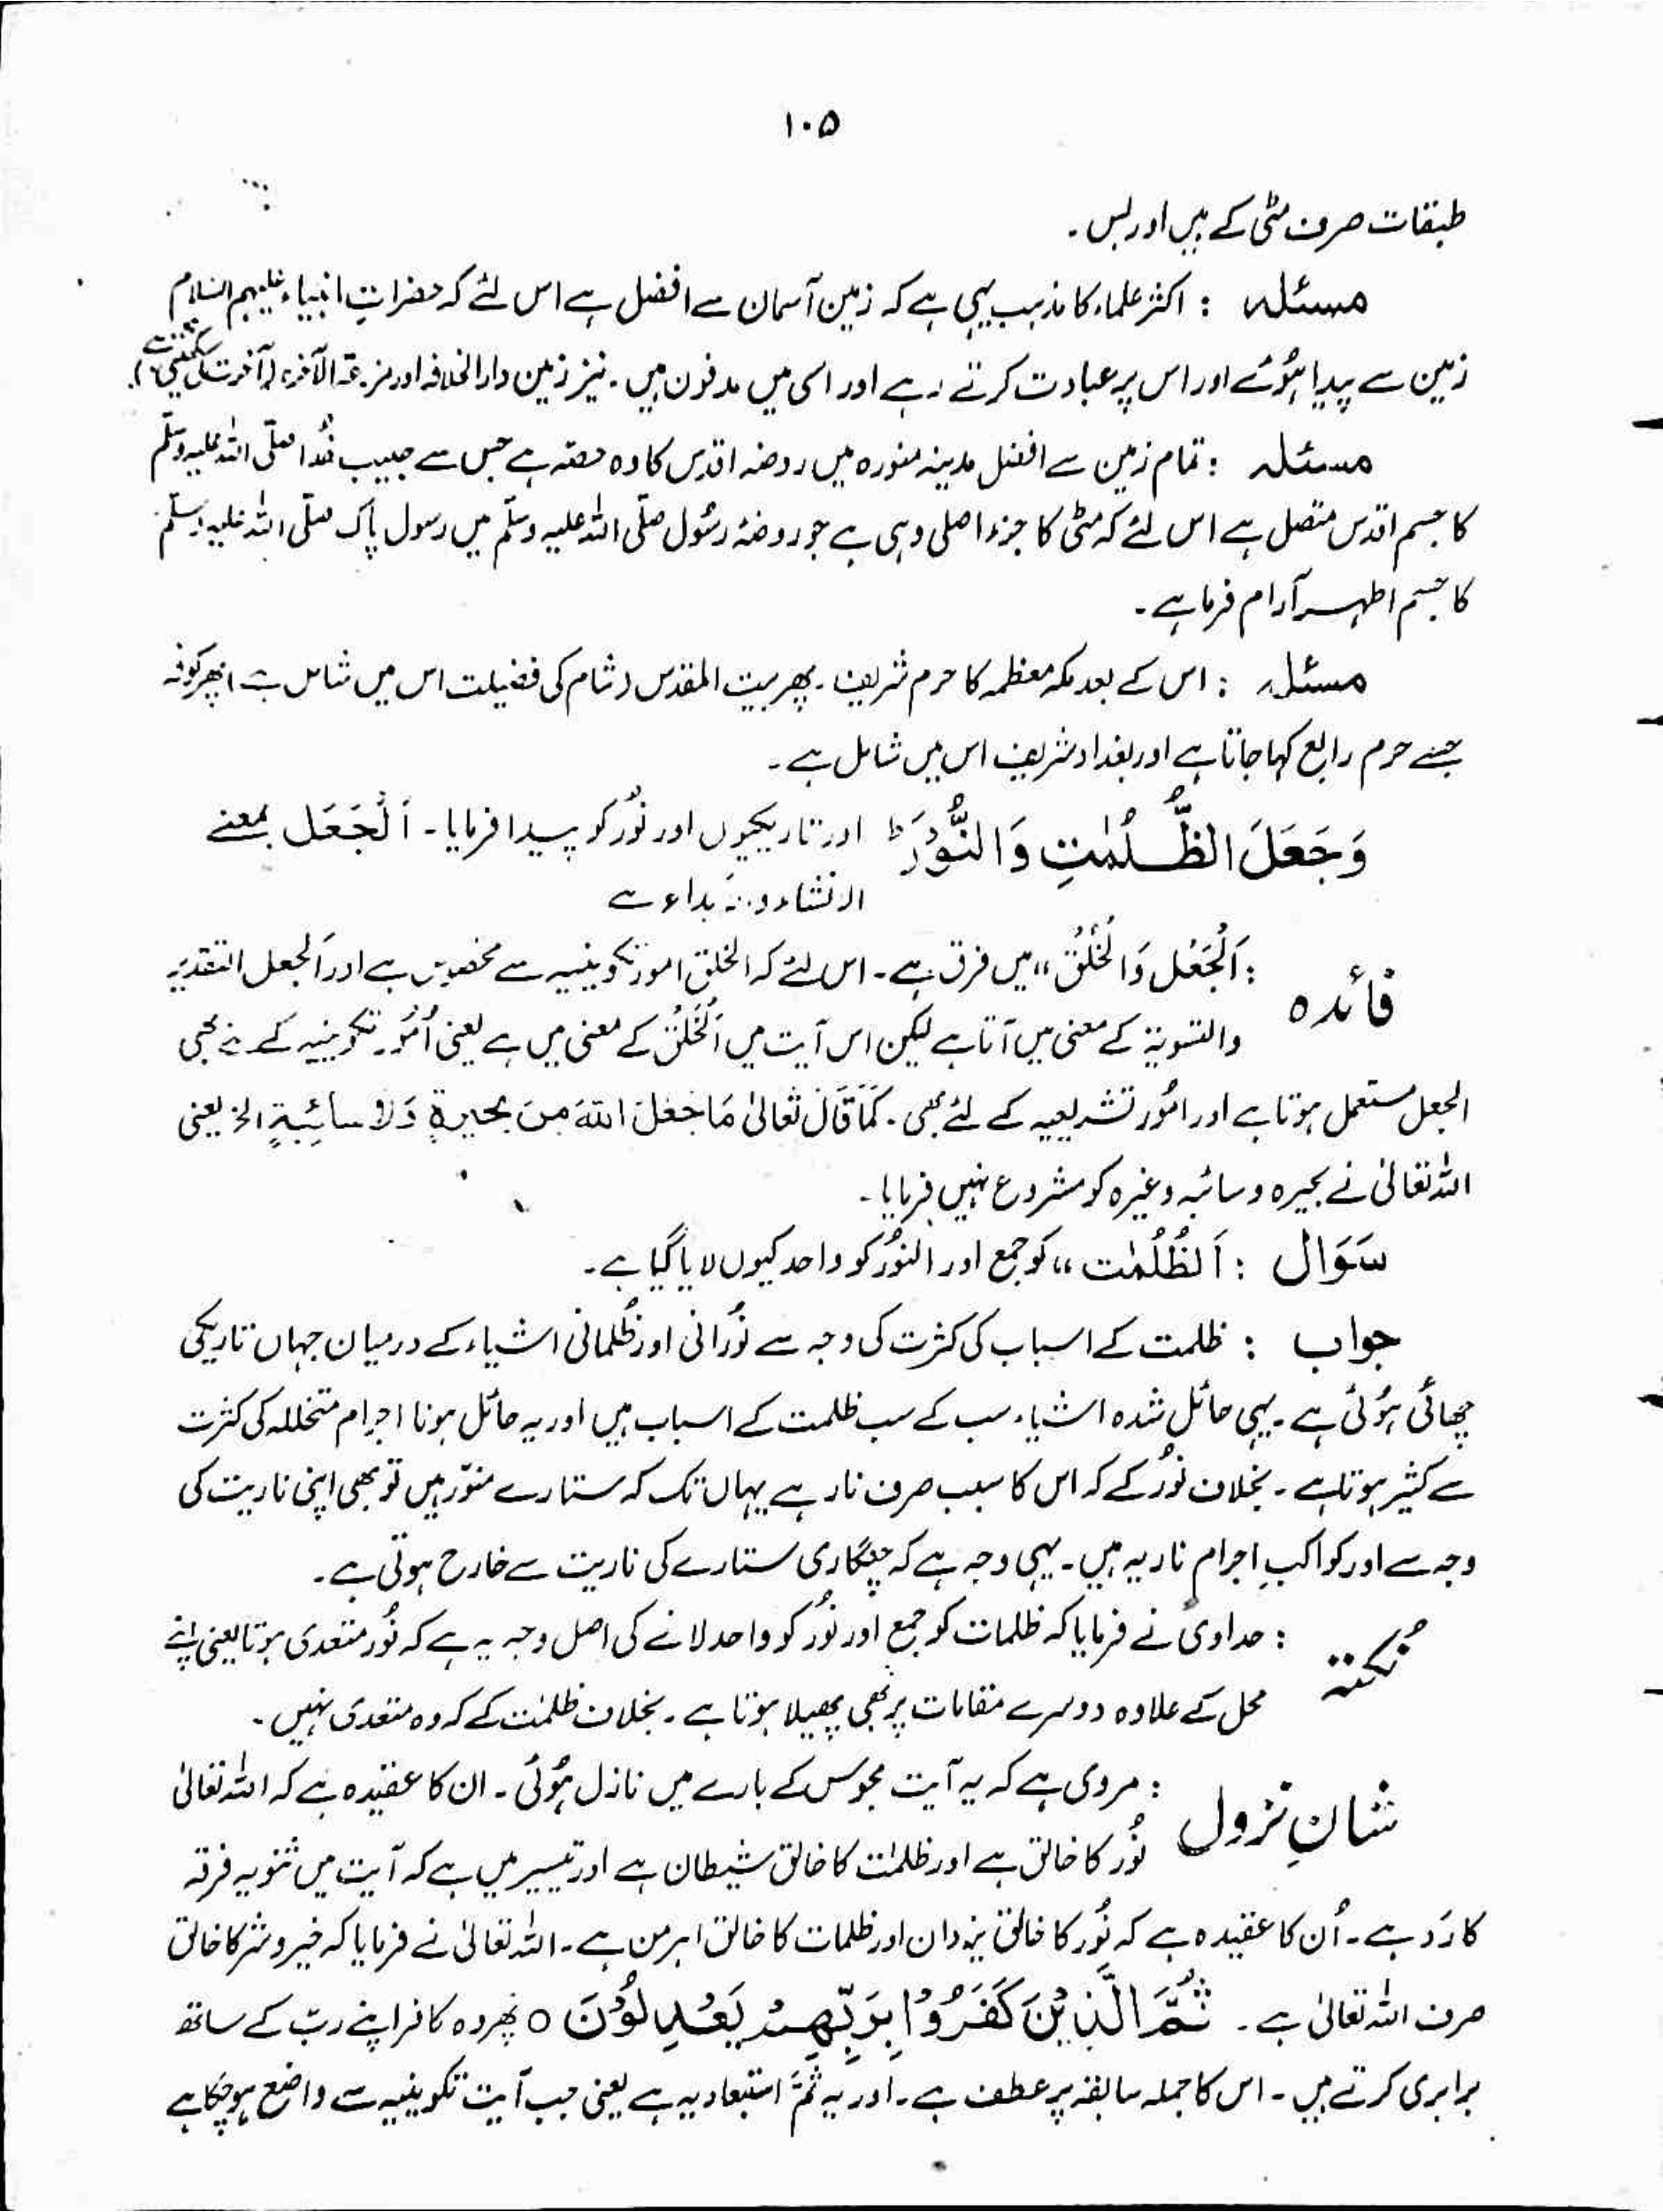 ۱۰۵
طبقات صرف مٹی کے ہیں اور بس ۔
مسئلہ : اکثر علماء کا مذہب یہی ہے کہ زمین آسمان سے افضل ہے اس لئے کہ حضراتِ انبیاء علیہم السلام
زمین سے پیدا ہُوئے اور اس پر عبادت کرتے رہے اور اسی میں مدفون ہیں ۔ نیز زمین دارالخلافہ اور مزرعۃ الآخرۃ (آخرت کی کھیتی) ہے ۔
مسئلہ : تمام زمین سے افضل مدینہ منورہ میں روضہ اقدس کا وہ حصّہ ہے جس سے حبیب خُدا صلّی اللہ علیہ وسلّم
کا جسم اقدس متصل ہے اس لئے کہ مٹی کا جزء اصلی وہی ہے جو روضۂ رسُول صلّی اللہ علیہ وسلّم میں رسول پاک صلّی اللہ علیہ وسلّم
کا جسم اطہر آرام فرما ہے ۔
مسئلہ : اس کے بعد مکہ معظمہ کا حرم شریف ۔ پھر بیت المقدس (شام کی فضیلت اس میں شامل ہے) پھر کوفہ
جسے حرم رابع کہا جاتا ہے اور بغداد شریف اس میں شامل ہے ۔
وَجَعَلَ الظُّلُمٰتِ وَالنُّوْرَ ط اور تاریکیوں اور نُور کو پیدا فرمایا ۔ اَلْجَعَل بمعنے
الانشاء و ابداء ہے
فائدہ : اَلْجَعْل وَالْخَلْقُ ،، میں فرق ہے ۔ اس لئے کہ الخلق امور تکوینیہ سے مخصوص ہے اور اَلجعل التقدیر
والتسویۃ کے معنیٰ میں آتا ہے لیکن اس آیت میں اَلْخَلْقُ کے معنی میں ہے یعنی اُمُور تکوینیہ کے لئے بھی
الجعل مستعمل ہوتا ہے اور امُور تشریعیہ کے لئے بھی ۔ کَمَا قَالَ تَعَالیٰ مَا جَعَلَ اللّٰہُ مِنْ بَحِیرۃٍ وَلَا سائِبۃٍ الخ یعنی
اللہ تعالیٰ نے بحیرہ و سائبہ وغیرہ کو مشروع نہیں فرمایا ۔
سَوَال : اَلظُلُمٰت ،، کو جمع اور النُّور کو واحد کیوں لایا گیا ہے ۔
جواب : ظلمت کے اسباب کی کثرت کی وجہ سے نُورانی اور ظُلمانی اشیاء کے درمیان جہاں تاریکی
چھائی ہُوئی ہے ۔ یہی حائل شدہ اشیاء سب کے سب ظلمت کے اسباب ہیں اور یہ حائل ہونا اجرام متخللہ کی کثرت
سے کثیر ہوتا ہے ۔ بخلاف نُور کے کہ اس کا سبب صرف نار ہے یہاں تک کہ ستارے منوّر ہیں تو بھی اپنی ناریت کی
وجہ سے اور کواکبِ اجرام ناریہ ہیں ۔ یہی وجہ ہے کہ چنگاری ستارے کی ناریت سے خارج ہوتی ہے ۔
نُکتہ : حدادی نے فرمایا کہ ظلمات کو جمع اور نُور کو واحد لانے کی اصل وجہ یہ ہے کہ نُور متعدی ہوتا یعنی اپنے
محل کے علاوہ دوسرے مقامات پر بھی پھیلا ہوتا ہے ۔ بخلاف ظلمٰت کے کہ وہ متعدی نہیں ۔
شانِ نزول : مروی ہے کہ یہ آیت مجوس کے بارے میں نازل ہُوئی ۔ ان کا عقیدہ ہے کہ اللہ تعالیٰ
نُور کا خالق ہے اور ظلمٰت کا خالق شیطان ہے اور تیسیر میں ہے کہ آیت میں ثنویہ فرقہ
کا رَد ہے ۔ اُن کا عقیدہ ہے کہ نُور کا خالق یزدان اور ظلمات کا خالق اہرمن ہے ۔ اللہ تعالیٰ نے فرمایا کہ خیر و شر کا خالق
صرف اللہ تعالیٰ ہے ۔ ثُمَّ الَّذِیْنَ کَفَرُوْا بِرَبِّھِمْ یَعْدِلُوْنَ ○ پھر وہ کافر اپنے ربّ کے ساتھ
برابری کرتے ہیں ۔ اس کا جملہ سابقہ پر عطف ہے ۔ اور یہ ثُمَّ استبعادیہ ہے یعنی جب آیت تکوینیہ سے واضع ہو چُکا ہے